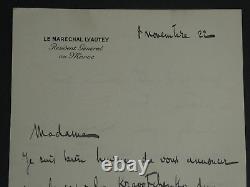 LE MARÉCHAL LYAUTEY
Résident Général
au Maroc
8 novembre 22
Madame
Je suis bien heureux de vous annoncer